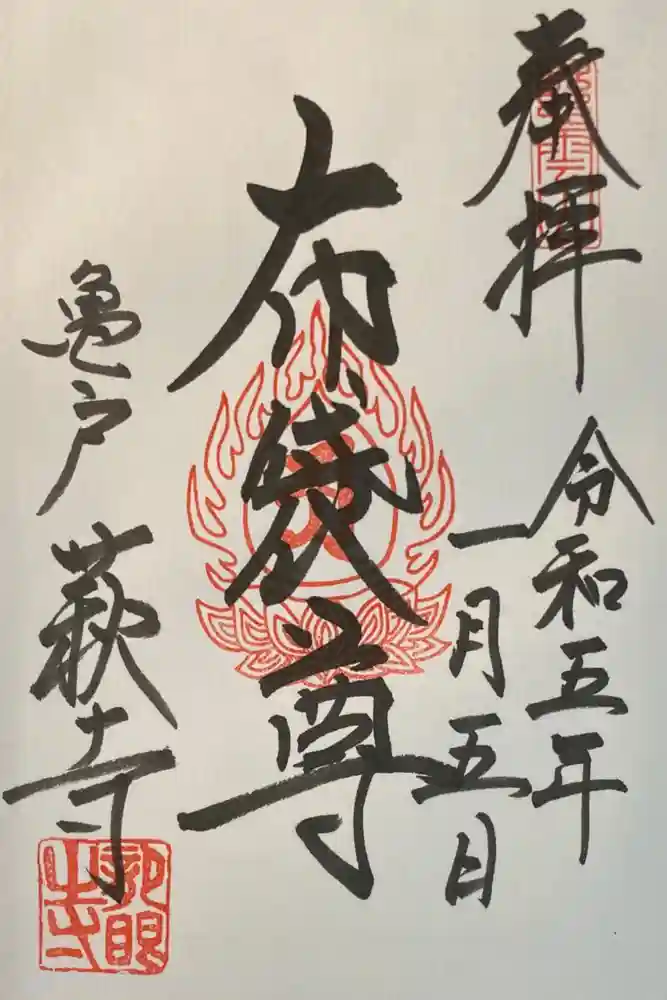 奉拝
令和五年
一月五日
布袋尊
亀戸
萩寺